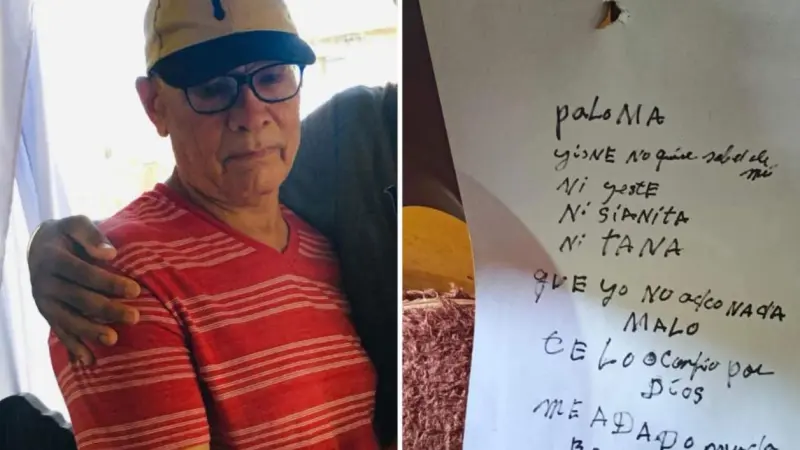 paLoMA
yisNE No quire sabel de
mi
Ni yestE
Ni SiANitA
Ni TANA
qUE yo No adco NAdA
MALO
tE Lo por
Dios
ME ADADO